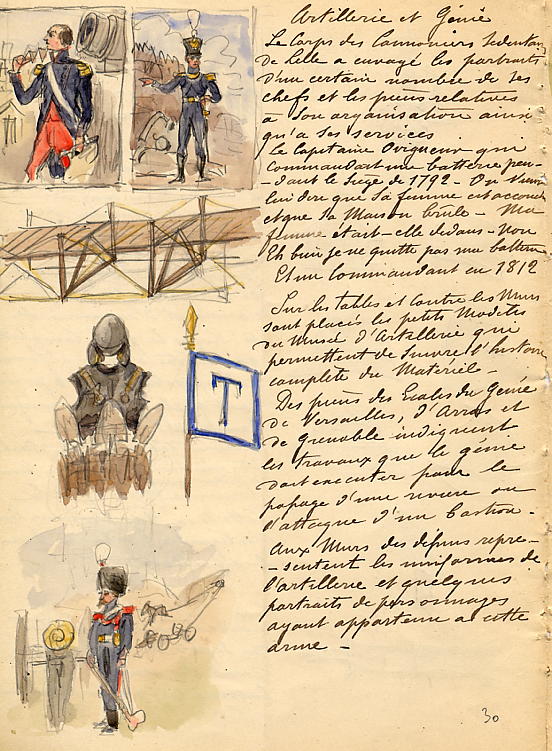 Artillerie et Génie
Le Corps des Canonniers Sédentaires
de Lille a envoyé les portraits
d'un certain nombre de ses
chefs et les pièces relatives
à son organisation ainsi
qu'à ses services
Le Capitaine Ovigneur qui
commandait une batterie pen-
-dant le Siège de 1792 - On vient
lui dire que sa femme est accouchée
et que sa Maison brule - Ma
femme était-elle dedans - non
Eh bien je ne quitte pas ma batterie
Et un Commandant en 1812
Sur les tables et contre les Murs
sont placés les petits Modèles
du Musée d'Artillerie qui
permettent de suivre l'histoire
complète du Matériel -
Des pièces des Ecoles du Génie
de Versailles, d'Arras et
de Grenoble indiquent
les travaux que le génie
doit executer pour le
passage d'une rivière ou
l'attaque d'un bastion -
Aux Murs des dessins repré-
-sentent les uniformes de
l'artillerie et quelques
portraits de personnages
ayant appartenu à cette
arme -
T
30